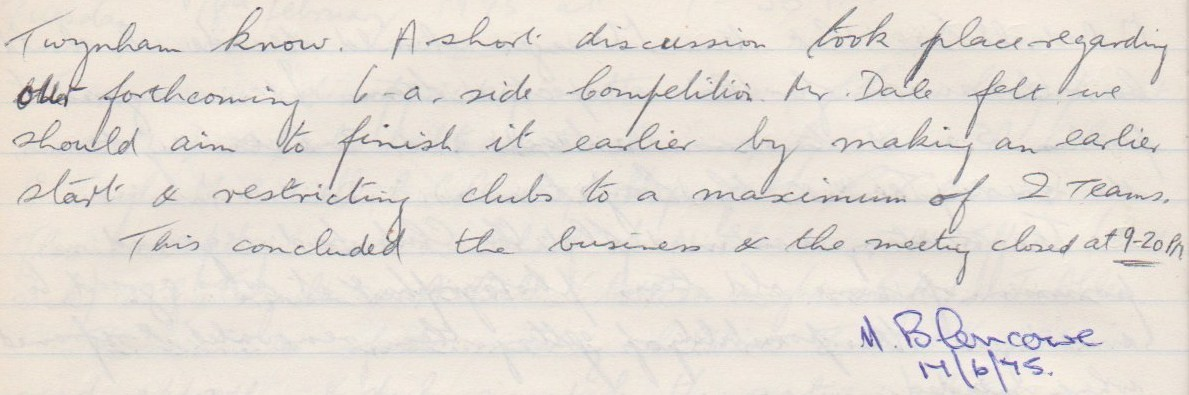 Twynham know. A short discussion took place regarding
our forthcoming 6-a-side Competition. Mr. Dale felt we
should aim to finish it earlier by making an earlier
start & restricting clubs to a maximum of 2 Teams.
This concluded the business & the meeting closed at 9-20 PM
M. Blencowe
17/6/75.